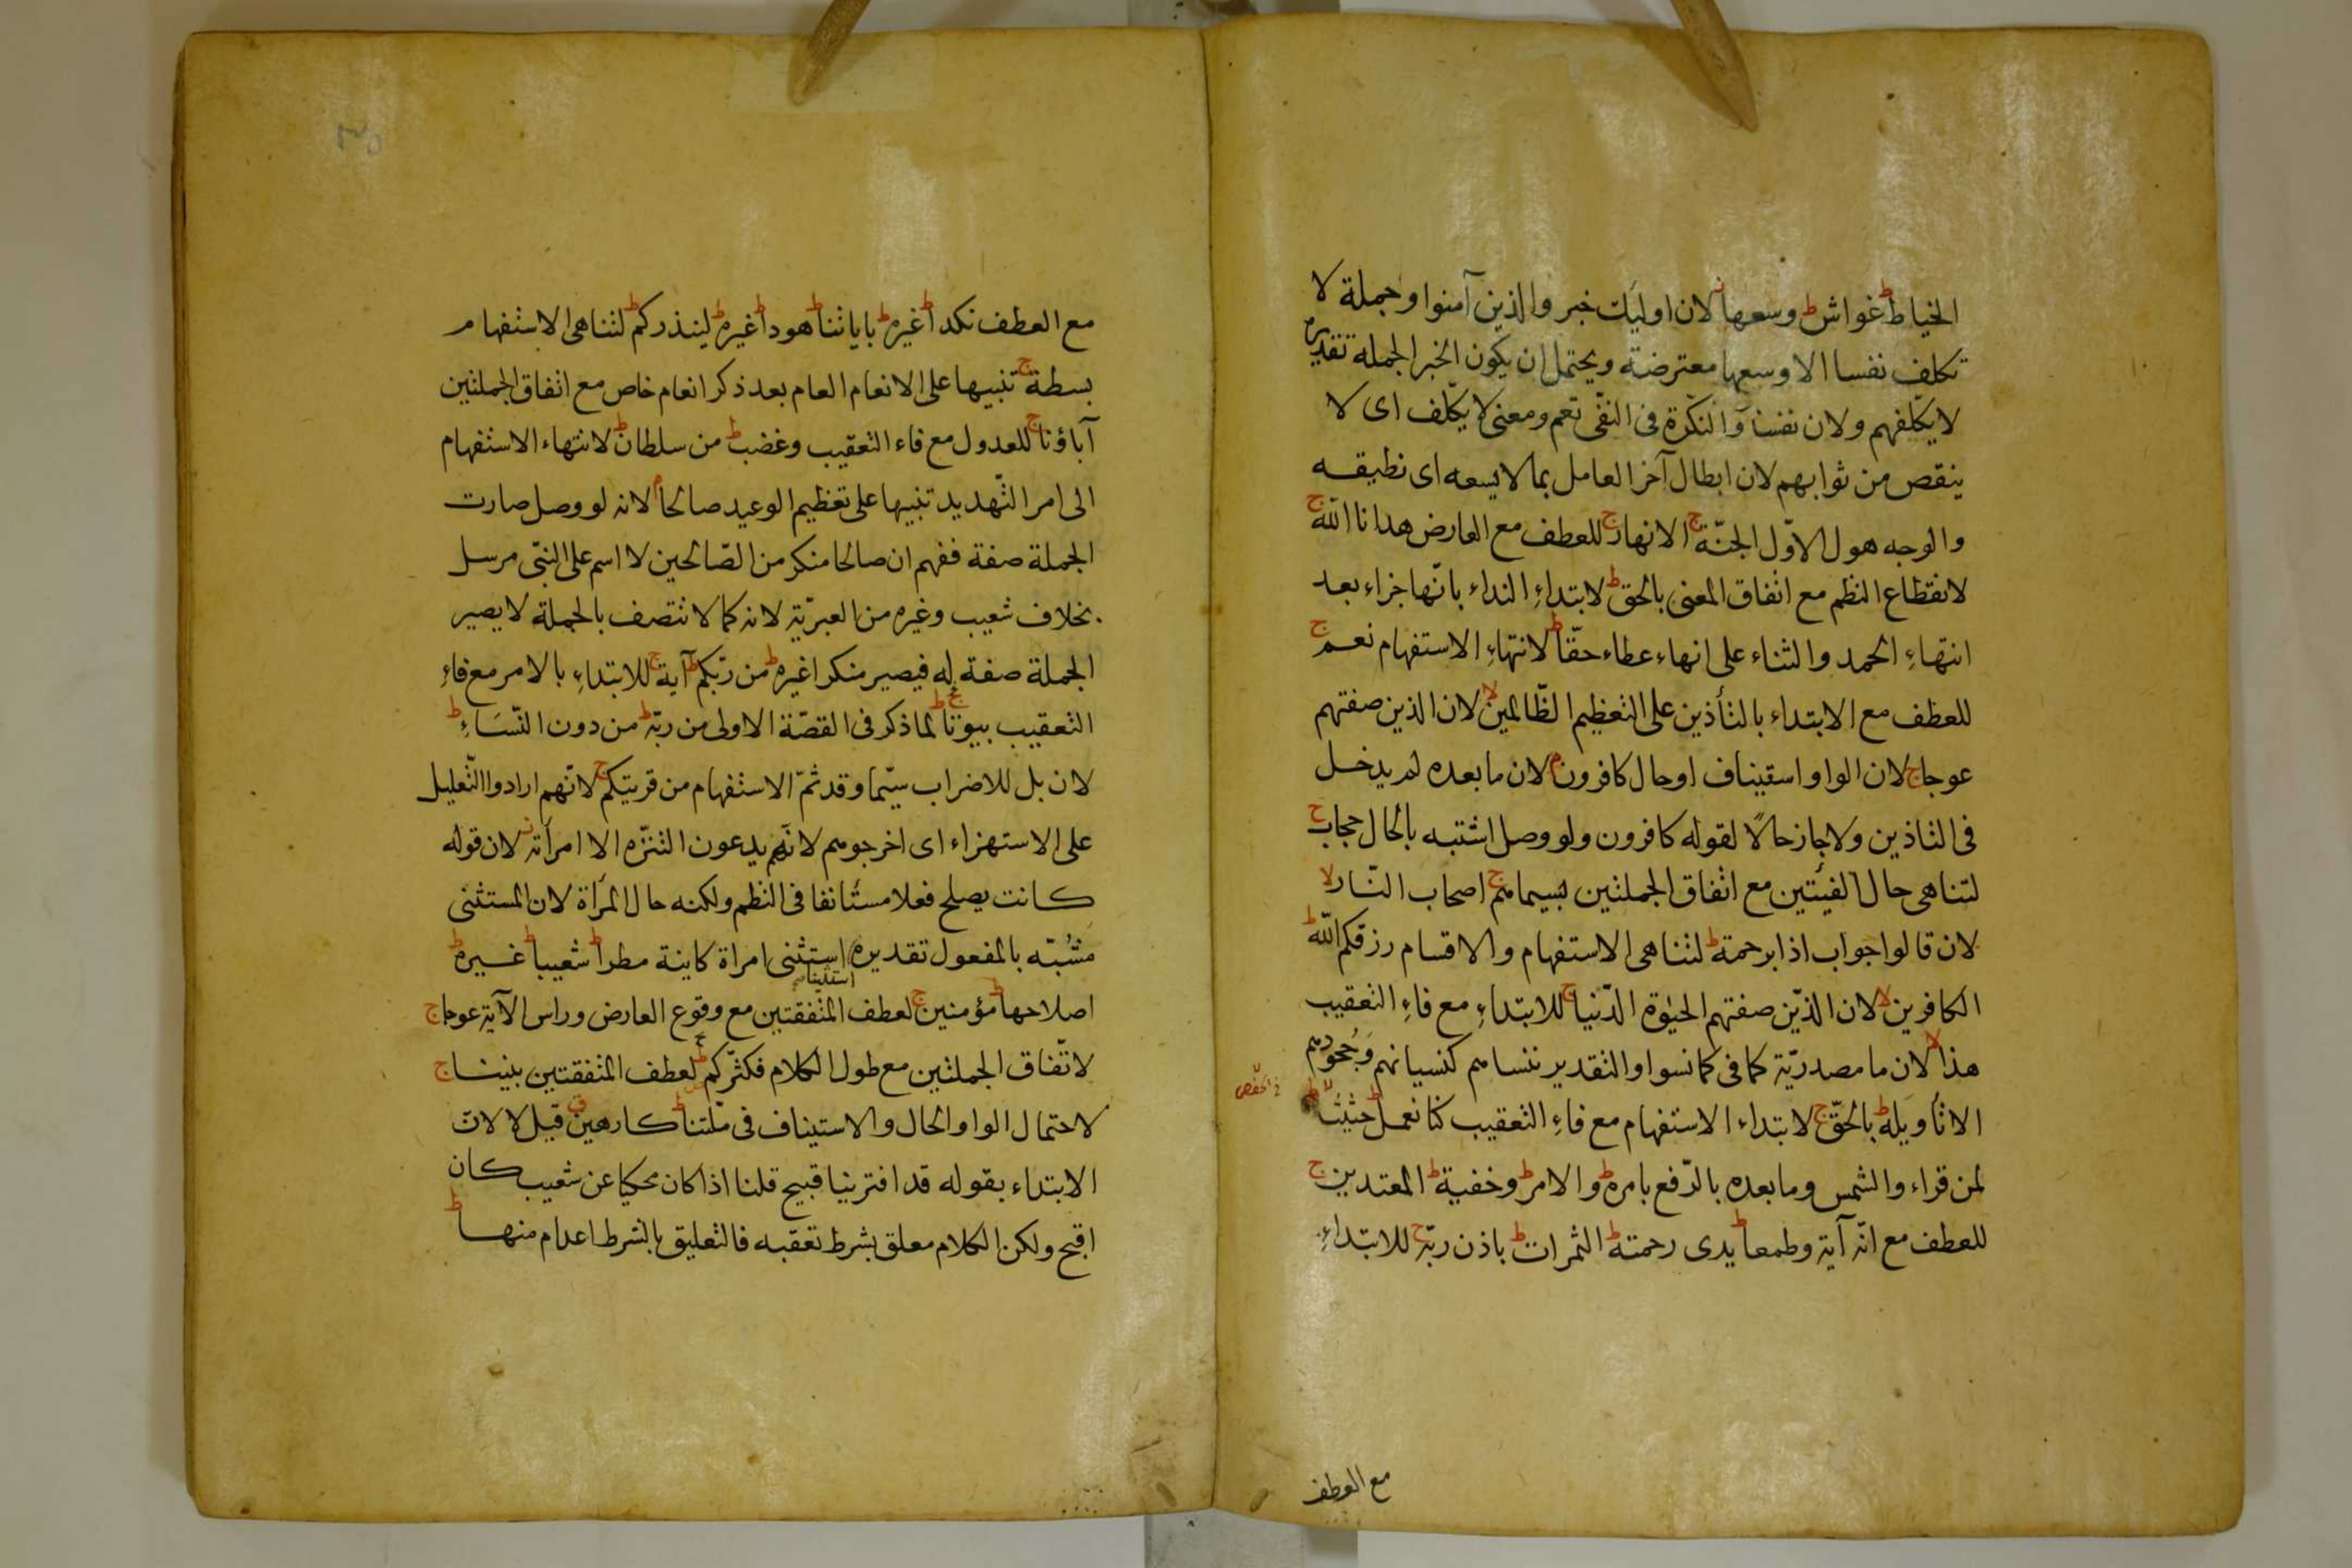 الخياط ط غواش ط وسعها ز لان اوليك خبر والذين آمنوا وجملة لا
تكلف نفسا الا وسعها معترضة ويحتمل ان يكون الخبر الجملة تقديره
لا يكلفهم ولان نفسا والنكرة فى النفى تعم ومعنى لا يكلف اى لا
ينقص من ثوابهم لان ابطال آخر العامل بما لا يسعه اى نطيقه
والوجه هو الاول الجنّة ج الانهار ج للعطف مع العارض هدانا الله ج
لانقطاع النظم مع اتفاق المعنى بالحق ط لابتداء النداء بانّها جزاء بعد
انتهاء الحمد والثناء على انهاء عطاء حقّا ط لانتهاء الاستفهام نعم ج
للعطف مع الابتداء بالتأذين على التعظيم الظّالمين لا لان الذين صفتهم
عوجا ج لان الواو استيناف او حال كافرون م لان ما بعده لم يدخل
فى التاذين ولا جاز حالًا لقوله كافرون ولو وصل اشتبه بالحال حجاب ج
لتناهى حال الفئتين مع اتفاق الجملتين بسيماهم ج اصحاب النّار لا
لان قالوا جواب اذا برحمة ط لتناهى الاستفهام والاقسام رزقكم الله ط
الكافرين لا لان الذّين صفتهم الحيوة الدّنيا ج للابتداء مع فاء التعقيب
هذا لا لان ما مصدريّة كما فى كما نسوا والتقدير ننساهم كنسيانهم وجحودهم
الا تأويله ط بالحقّ ج لابتداء الاستفهام مع فاء التعقيب كنا نعمل ط حثيثا لا
لمن قراء والشمس وما بعده بالرّفع بامره ط والامر ط وخفية ط المعتدين ج
للعطف مع انّه آية وطمعا ط يدى رحمته ط الثمرات ط باذن ربّه ج للابتداء
مع العطف
مع العطف نكدا ط غيره ط باياتنا ط هودا ط غيره ط لينذركم ط لتناهى الاستفهام
بسطة ج تنبيها على الانعام العام بعد ذكر انعام خاص مع اتفاق الجملتين
آباؤنا ج للعدول مع فاء التعقيب وغضب ط من سلطان ط لانتهاء الاستفهام
الى امر التّهديد تنبيها على تعظيم الوعيد صالحا م لانه لو وصل صارت
الجملة صفة ففهم ان صالحا منكر من الصّالحين لا اسم على النبّى مرسل
بخلاف شعيب وغيره من العبريّة لانه كما لا تتصف بالجملة لا يصير
الجملة صفة له فيصير منكرا غيره ط من ربّكم ط آية ج للابتداء بالامر مع فاء
التعقيب بيوتنا ط لما ذكر فى القصّة الاولى من ربّه ط من دون النّساء ط
لان بل للاضراب سيّما وقد تمّ الاستفهام من قريتكم ج لانّهم ارادوا التّعليل
على الاستهزاء اى اخرجوهم لانّهم يدعون التنزّه الا امرأته ز لان قوله
كانت يصلح فعلا مستأنفا فى النظم ولكنه حال المرأة لان المستثنى
مشبّه بالمفعول تقديره استثنى امراة كاينة مطرا ط شعيبا ط غيره ط
اصلاحها ط مؤمنين ج لعطف المتفقتين مع وقوع العارض وراس الآية عوجا ج
لاتّفاق الجملتين مع طول الكلام فكثّركم لعطف المتفقتين بيننا ج
لاحتمال الواو الحال والاستيناف فى ملّتنا ط كارهين ق قيل لا لان
الابتداء بقوله قد افترينا قبيح قلنا اذا كان محكيا عن شعيب كان
اقبح ولكن الكلام معلق بشرط تعقبه فالتعليق بالشرط اعدام منها ط